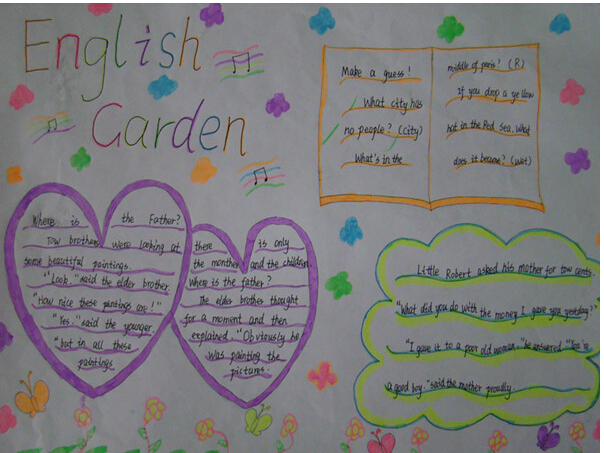 English
Garden
Make a guess!
What city has
no people? (city)
What's in the
middle of paris? (R)
If you drop a yellow
hat in the Red Sea. What
does it become? (wet)
Where is the Father?
Tow brothers were looking at
some beautiful paintings.
"Look." said the elder brother.
"How nice these paintings are!"
"Yes." said the younger.
"but in all these
paintings
there is only
the monther and the children.
Where is the father?
The elder brothes thought
for a moment and then
explained. "Obviously he
was painting the
pictures.
Little Robert asked his mother for tow cents.
"What did you do with the money I gave you yestday?"
"I gave it to a poor old woman." he answered "You're
a good boy." said the mother proudly.